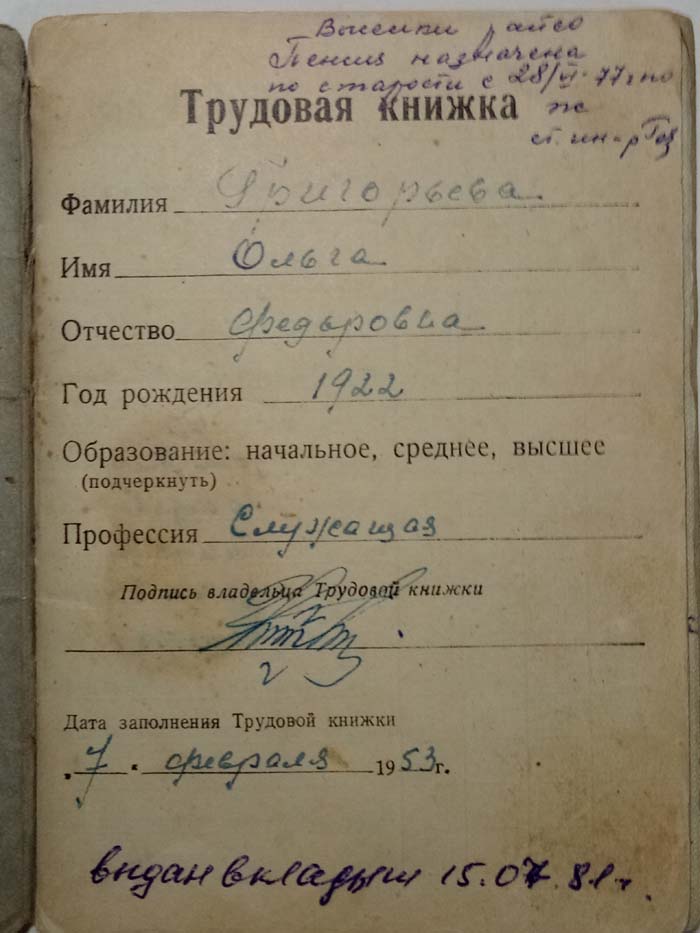 райсо
Пенсия назначена
по старости с 28/VI-77г по
Трудовая книжка
ст. ин-р
Фамилия Григорьева
Имя Ольга
Отчество Федоровна
Год рождения 1922
Образование: начальное, среднее, высшее
(подчеркнуть)
Профессия Служащая
Подпись владельца Трудовой книжки
Дата заполнения Трудовой книжки
„7“ февраля 1953г.
выдан вкладыш 15.07.81г.